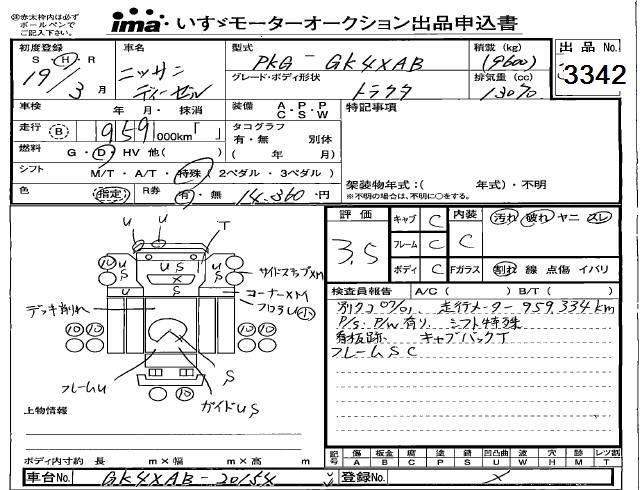 ㊟赤太枠内は必ず
ボールペンで
ご記入下さい。
ima いすゞモーターオークション出品申込書
初度登録 車名 型式 積載 (kg) 出品No.
S・H・R ニッサン PKG - GK4XAB (9600) 3342
19/3 月 ディーゼル グレード・ボディ形状 排気量 (cc)
トラクタ 13070
車検 年 月・抹消 装備 A・P・P 特記事項
C・S・W
走行 B 959 000km「 」 タコグラフ
有・無 別体
燃料 G・D・HV 他( ) ( 年 月)
シフト M/T・A/T・特殊 (2ペダル・3ペダル) 架装物年式:( 年式)・不明
色 (指定) R券 有・無 14,360円 ※不明の場合は、不明に○をする。
評価 キャブ C 内装 汚れ・破れ・ヤニ・スレ
3.5 フレーム C C
ボディ C Fガラス 割れ 線 点傷 イバリ
検査員報告 A/C ( ) B/T ( )
別タコ07/01, 走行メーター959334km
P/S. P/W有り シフト特殊
看板跡 キャブバックT
フレームSC
U U T
10 U U S U S
U S S
サイドステップXM
コーナーXM
フロアSU小
デッキ削れ
10 10 10 10
フレームU S
10
ガイドUS
上物情報
ボディ内寸約 長 m×幅 m×高 m
記号 傷 板金 腐 塗 錆 凹凸曲 波 穴 跡 レツ割
A B C P S U W H M T
車台No. GK4XAB-20154 登録No. X